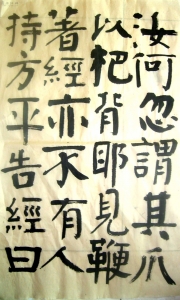 汝何忽謂其爪
以杷背耶見鞭
著經亦不有人
持方平告經曰